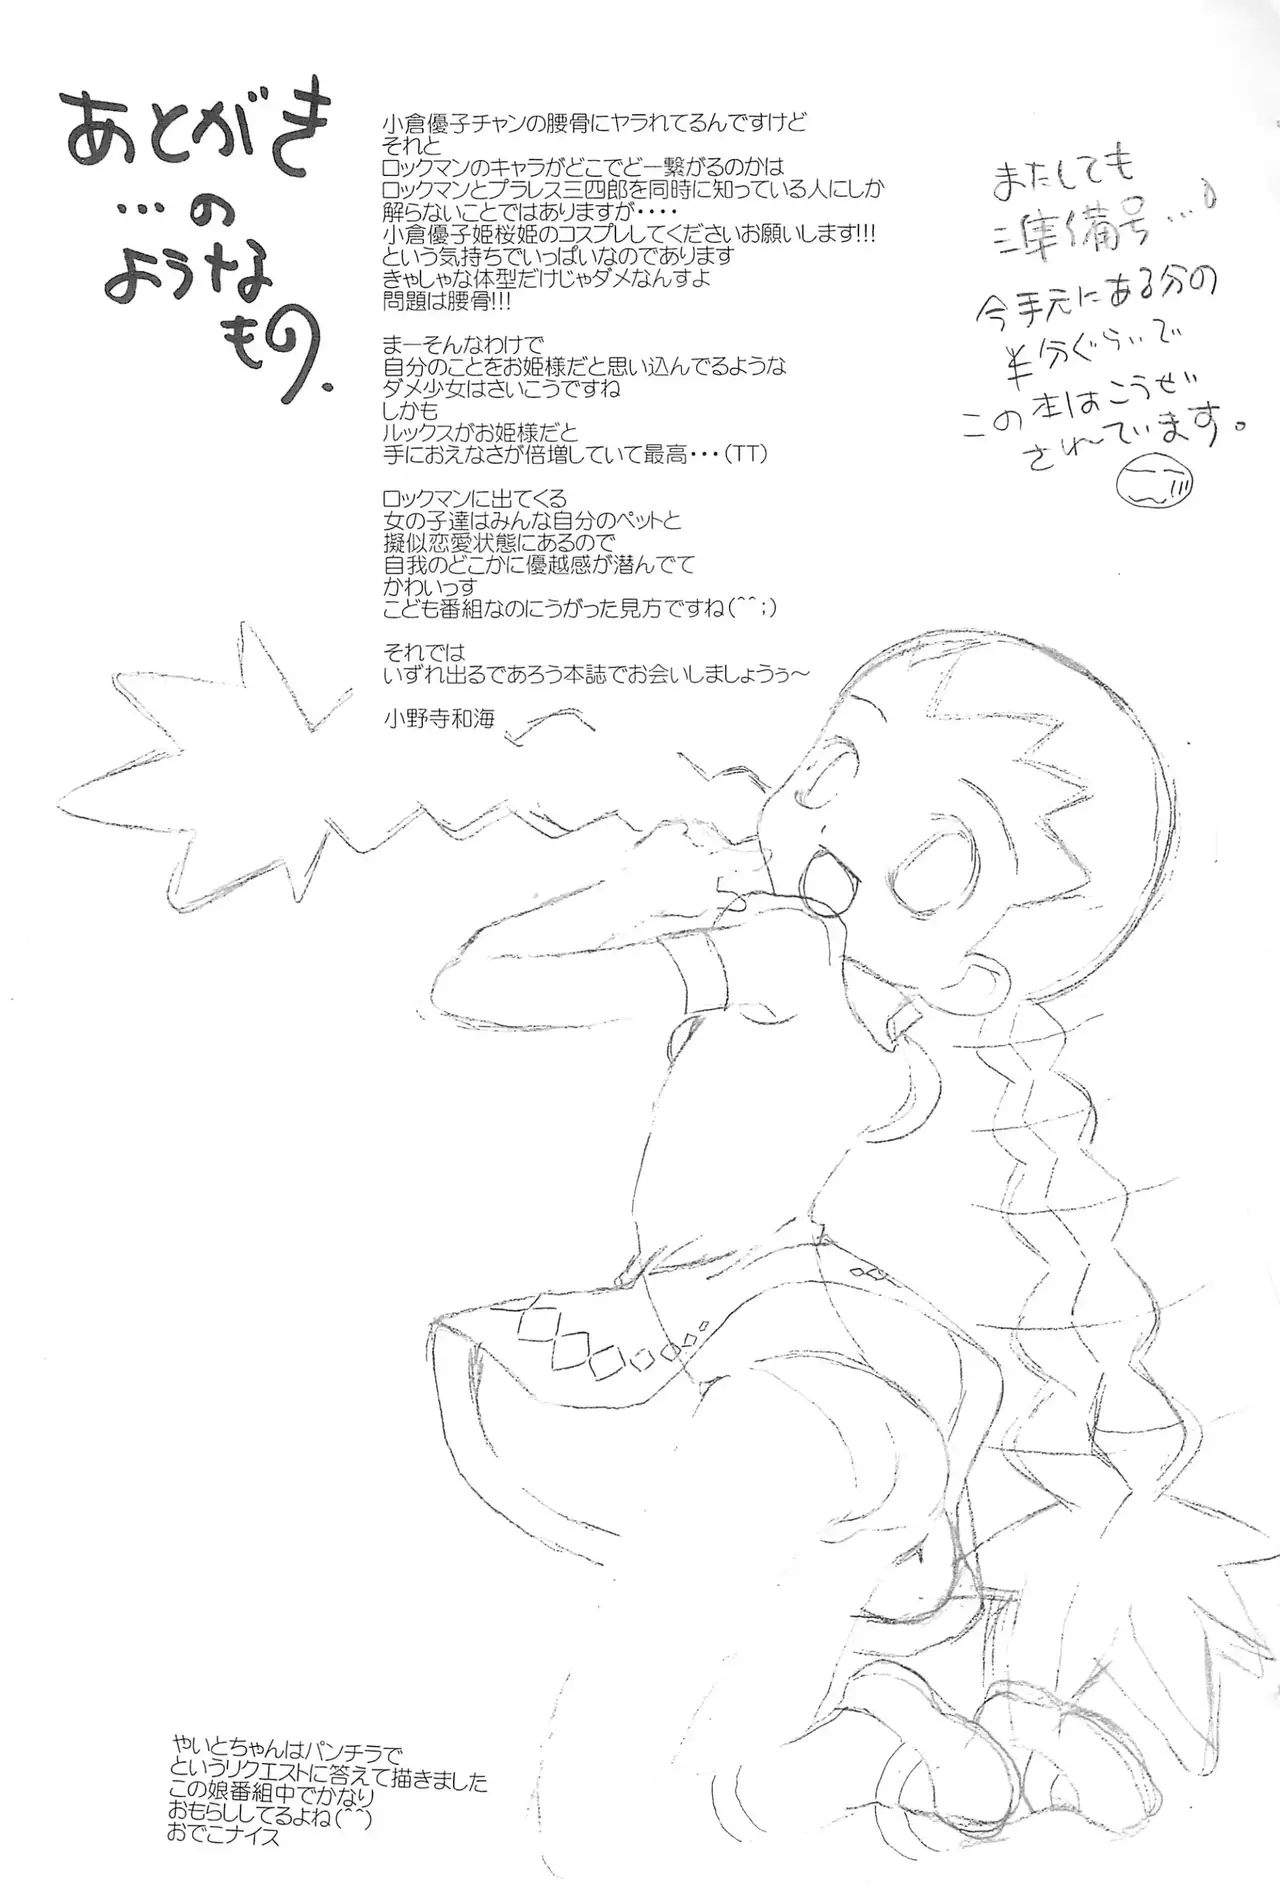 あとがき
…の
ような
もの.
小倉優子チャンの腰骨にヤラれてるんですけど
それと
ロックマンのキャラがどこでどー繋がるのかは
ロックマンとプラレス三四郎を同時に知っている人にしか
解らないことではありますが・・・・
小倉優子姫桜姫のコスプレしてくださいお願いします!!!
という気持ちでいっぱいなのであります
きゃしゃな体型だけじゃダメなんすよ
問題は腰骨!!!
まーそんなわけで
自分のことをお姫様だと思い込んでるような
ダメ少女はさいこうですね
しかも
ルックスがお姫様だと
手におえなさが倍増していて最高・・・(TT)
ロックマンに出てくる
女の子達はみんな自分のペットと
擬似恋愛状態にあるので
自我のどこかに優越感が潜んでて
かわいっす
こども番組なのにうがった見方ですね(^^;)
それでは
いずれ出るであろう本誌でお会いしましょうぅ～
小野寺和海
またしても
準備号…♪
今手元にある分の
半分ぐらいで
この本はこうせい
されています。
やいとちゃんはパンチラで
というリクエストに答えて描きました
この娘番組中でかなり
おもらししてるよね(^^)
おでこナイス